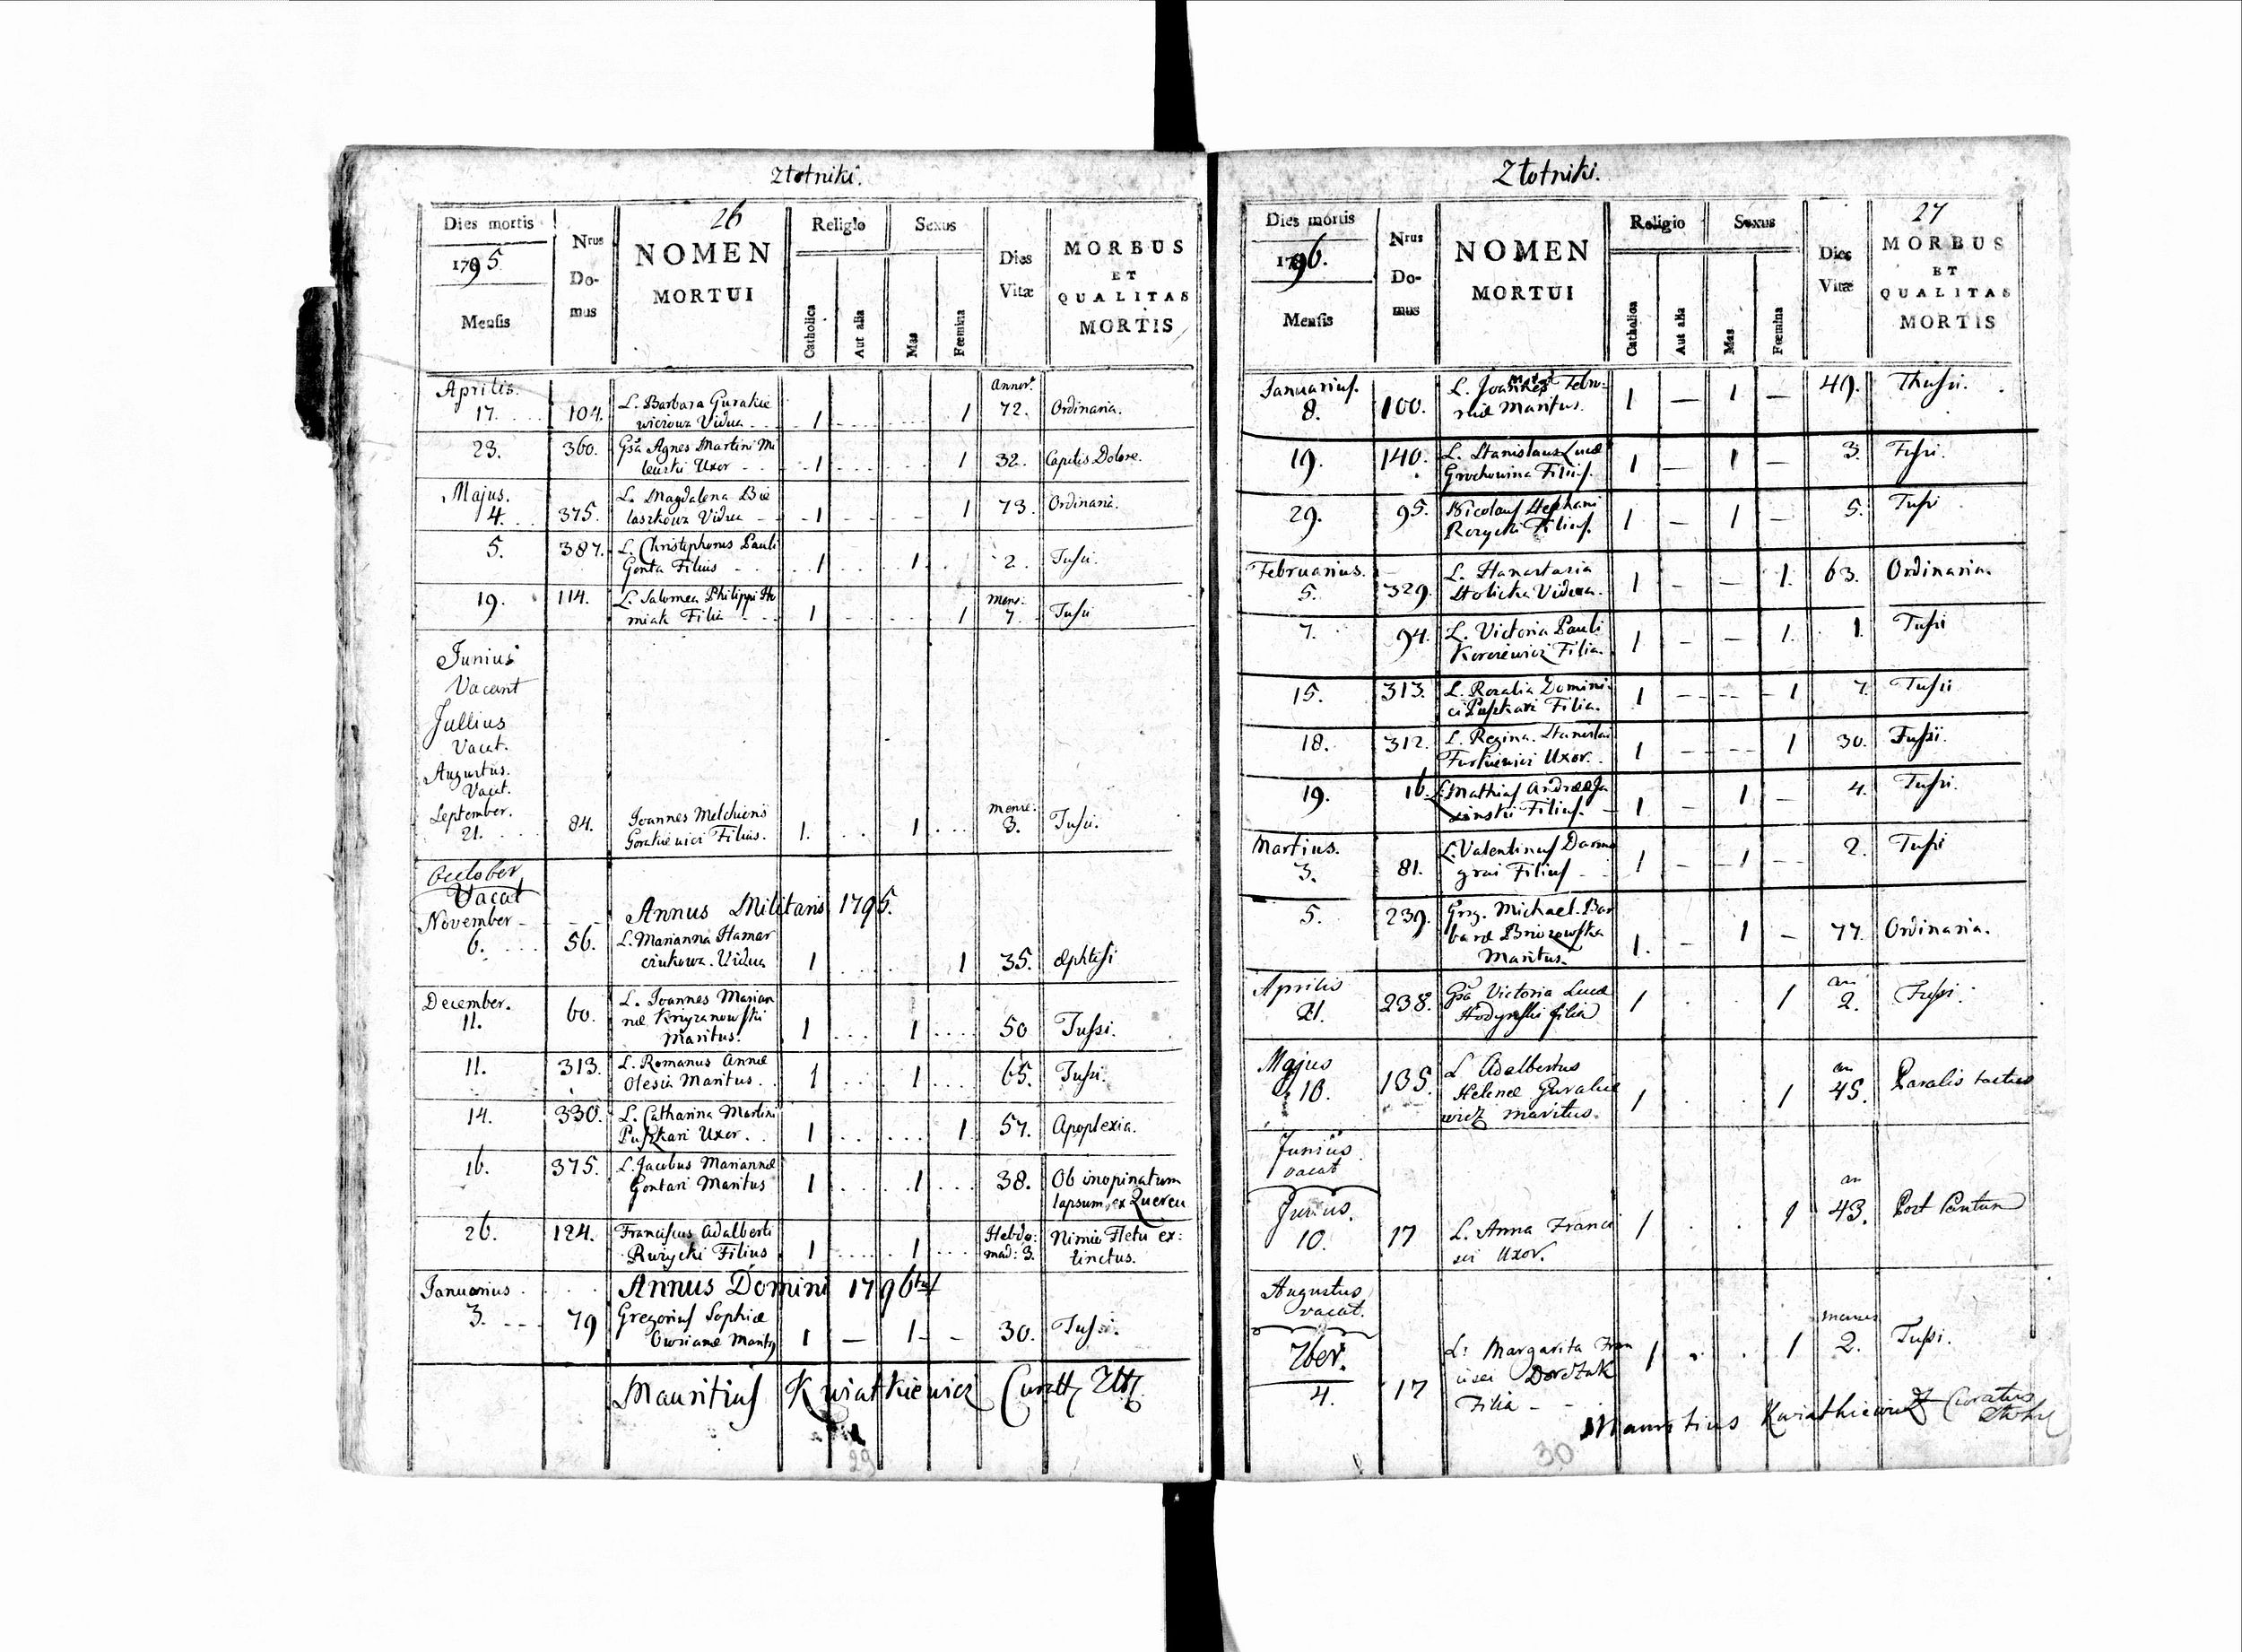 Złotniki.
26
Dies mortis
1795.
Mensis
Nrus Do-mus
NOMEN MORTUI
Religio
Catholica
Aut alia
Sexus
Mas
Fœmina
Dies Vitæ
MORBUS ET QUALITAS MORTIS
Aprilis. Annor.
17. 104. L. Barbara Gurakie 1 1 72. Ordinaria.
wiczowa Vidua
23. 360. Gsa Agnes Martini Mi 1 1 32. Capitis Dolore.
Uxor
Majus. L. Magdalena Bie
4. 375. laszkowa Vidua 1 1 73. Ordinaria.
5. 387. L. Christophorus Pauli 1 1 2. Tussi.
Gonta Filius
19. 114. L. Salomea Philippi Ho 1 1 Mens: 7. Tussi
miak Filia
Junius
Vacant
Jullius
Vacat.
Augustus.
Vacat.
September. Mense:
21. 84. Joannes Melchioris 1. 1 3. Tussi.
Filius.
October
Vacat
Annus Militaris 1795.
November
6. 56. L. Marianna Hamar 1 1 35.
Vidua
December. L. Joannes Marian
11. 60. næ Krzyzanowski 1 1 50 Tussi.
Maritus.
11. 313. L. Romanus Annæ 1 1 65. Tussi.
Olesia Maritus.
14. 330. L. Catharina Martini 1 1 57. Apoplexia.
Puszkari Uxor.
16. 375. L. Jacobus Mariannæ 1 1 38. Ob inopinatum
Gontari Maritus lapsum, ex Quercu
26. 124. Franciscus Adalberti 1 1 Hebdo: Nimio Fletu ex:
Ruzycki Filius mad: 3. tinctus.
Januarius Annus Domini 1796tus
3. 79 Gregorius Sophiæ 1 1 30. Tussi.
Maritus
Mauritius Kwiatkiewicz
29
Złotniki.
27
Dies mortis
1796.
Mensis
Nrus Do-mus
NOMEN MORTUI
Religio
Catholica
Aut alia
Sexus
Mas
Fœmina
Dies Vitæ
MORBUS ET QUALITAS MORTIS
Januarius.
8. 100. L. 1 — 1 — 49. Thussi.
Maritus.
19. 140. L. Stanislaus Lucæ 1 — 1 — 3. Tussi.
Grochowina Filius.
29. 95. Nicolaus Stephani 1 — 1 — 5. Tussi
Rozycki Filius.
Februarius. L. 63. Ordinaria.
5. 329. Stolicka Vidua. 1 — — 1.
7. 94. L. Victoria Pauli 1 — — 1. 1. Tussi
Filia.
15. 313. L. Rozalia Domini 1 1 7. Tussi
ci Puszkari Filia.
18. 312. L. Regina Stanislai 1 1 30. Tussi.
Uxor.
19. 16. L. Mathias Andreæ 1 — 1 — 4. Tussi.
Filius.
Martius. L. Valentinus
3. 81. Filius 1 — 1 — 2. Tussi
5. 239. Michael Bar
baræ Brzozowska 1. — 1 — 77. Ordinaria.
Maritus.
Aprilis an
21. 238. Gsa Victoria Lucæ 1 . . 1 2. Tussi.
Hodynski filia
Majus L Adalbertus an
10. 135. Helenæ Gurakie 1 . . 1 45. Paralis tactus
wicz maritus.
Junius.
vacat
Junius. an
10. 17 L. Anna Franci 1 . . 1 43.
sci Uxor.
Augustus
vacat.
menses
7ber. L: Margarita Fran 1 . . 1 2. Tussi.
4. 17 cisci Dorożak
Filia
Mauritius Kwiatkiewicz Curatus
30